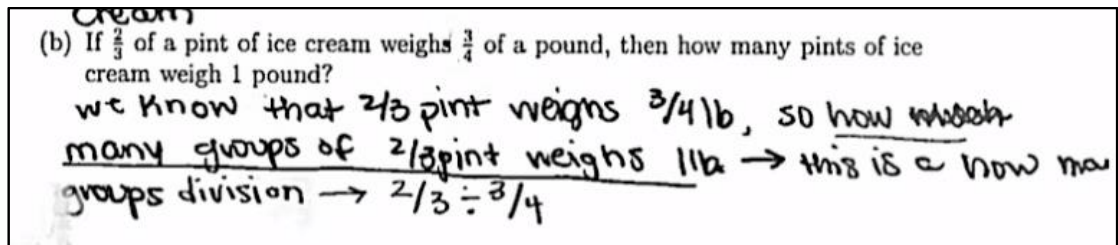 cream
(b) If 2/3 of a pint of ice cream weighs 3/4 of a pound, then how many pints of ice
cream weigh 1 pound?
we know that 2/3 pint weighs 3/4 lb, so how
many groups of 2/3 pint weighs 1 lb → this is a how
groups division → 2/3 ÷ 3/4